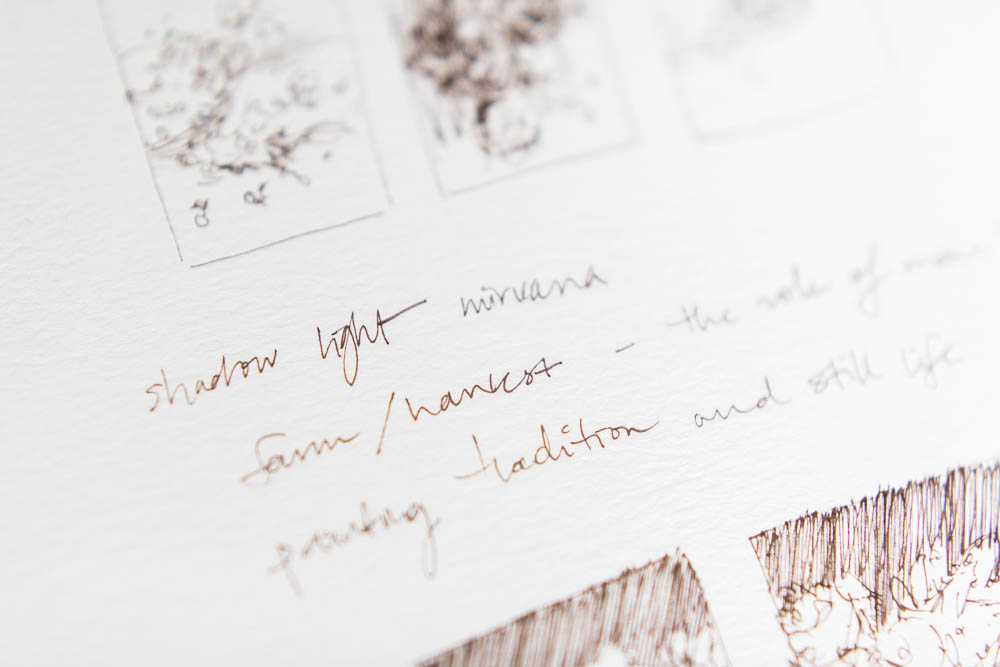 shadow light nirvana
farm/harvest - the role of man
painting tradition and still life